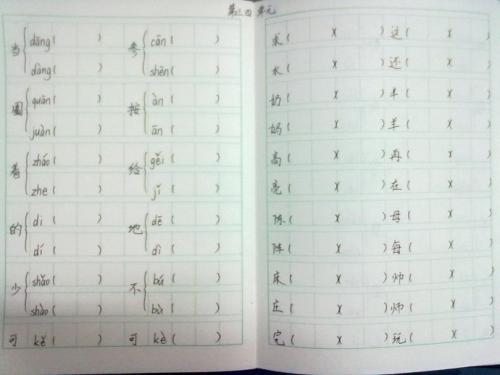 第三四单元
当{dāng( )
dàng( )
圈{quān( )
juàn( )
着{zháo( )
zhe( )
的{di( )
dí( )
少{shǎo( )
shào( )
可 kě( )
参{cān( )
shēn( )
按{àn( )
ān( )
给{gěi( )
jǐ( )
地{dē( )
dì( )
不{bú( )
bù( )
可 kè( )
求( )( )这( )( )
水( )( )还( )( )
奶( )( )丰( )( )
妈( )( )羊( )( )
高( )( )再( )( )
亮( )( )在( )( )
陈( )( )母( )( )
阵( )( )每( )( )
床( )( )帅( )( )
庄( )( )师( )( )
完( )( )玩( )( )